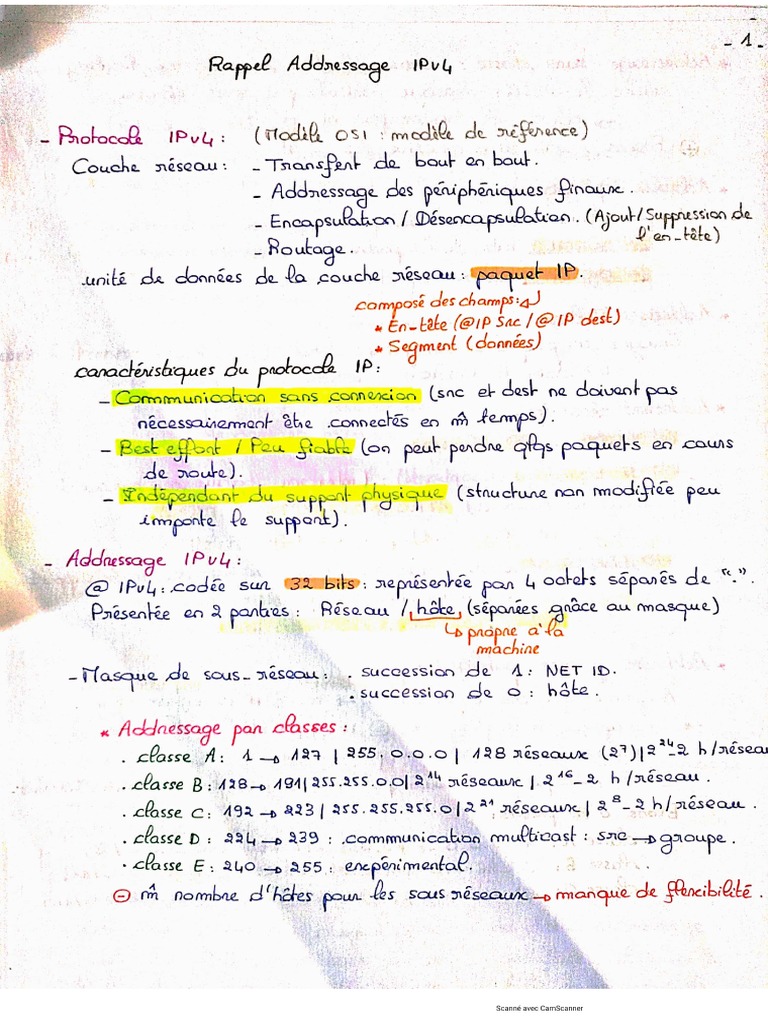 - 1 -
Rappel Addressage IPv4
- Protocole IPv4 : (Modèle OSI : modèle de référence)
Couche réseau : - Transfert de bout en bout.
- Addressage des périphériques finaux.
- Encapsulation / Désencapsulation. (Ajout/Suppression de
l'en-tête)
- Routage.
unité de données de la couche réseau : paquet IP.
composé des champs :
* En-tête (@IP src / @IP dest)
* Segment (données)
caractéristiques du protocole IP :
- Communication sans connexion (src et dest ne doivent pas
nécessairement être connectés en m̂ temps).
- Best effort / Peu fiable (on peut perdre qlqs paquets en cours
de route).
- Indépendant du support physique (structure non modifiée peu
importe le support).
- Addressage IPv4 :
@ IPv4 : codée sur 32 bits : représentée par 4 octets séparés de ".".
Présentée en 2 parties : Réseau / hôte (séparées grâce au masque)
↳ propre à la
machine
- Masque de sous-réseau : . succession de 1 : NET ID.
. succession de 0 : hôte.
* Addressage par classes :
. classe A : 1 → 127 | 255.0.0.0 | 128 réseaux (2⁷) | 2²⁴-2 h/réseau
. classe B : 128 → 191 | 255.255.0.0 | 2¹⁴ réseaux | 2¹⁶-2 h/réseau.
. classe C : 192 → 223 | 255.255.255.0 | 2²¹ réseaux | 2⁸-2 h/réseau.
. classe D : 224 → 239 : communication multicast : src → groupe.
. classe E : 240 → 255 : expérimental.
⊖ m̂ nombre d'hôtes pour les sous réseaux → manque de flexibilité.
Scanné avec CamScanner